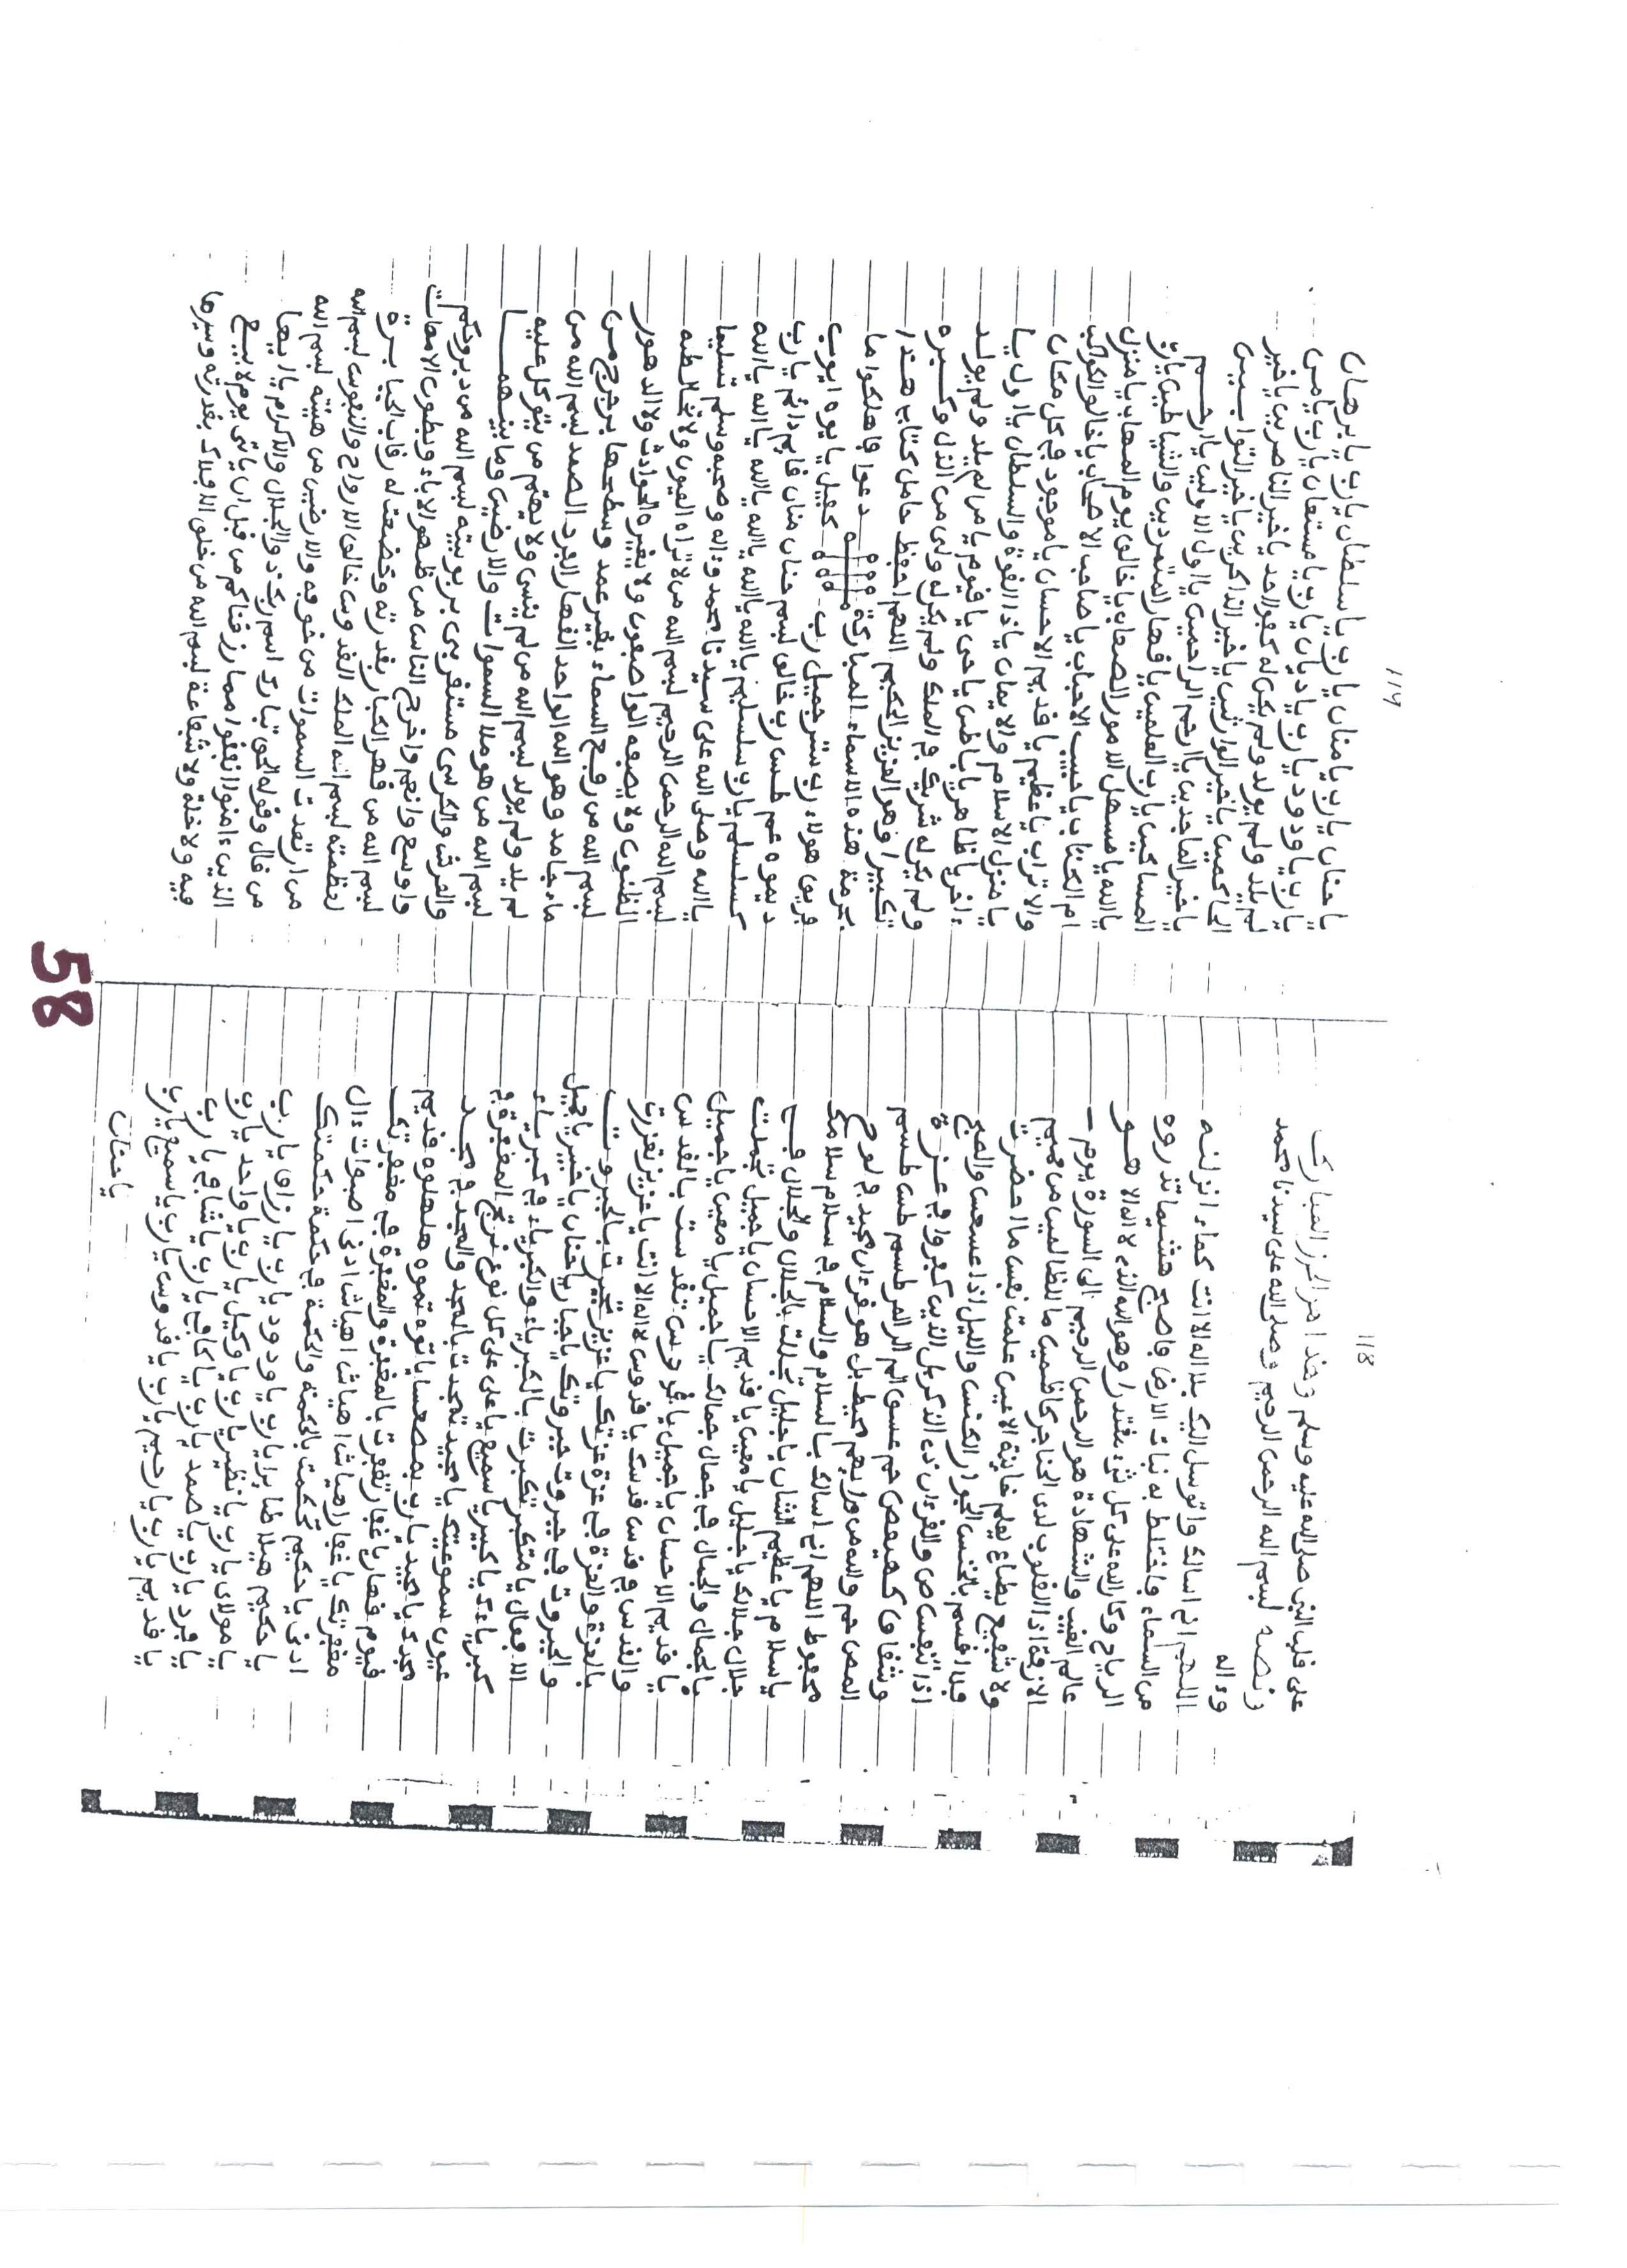 118
على قلب النبي صلى الله عليه وسلم وهذا هو الحرز المبارك
ونصه لبسم الله الرحمن الرحيم وصلى الله على سيدنا محمد
وءاله
اللهم انى اسالك واتوسل اليك بلا اله الا انت كماء انزلنه
من السماء واختلط به نبات الارض فاصبح هشيما تذروه
الرياح وكان الله على كل شىء مقتدرا وهو الله الذى لا اله الا هو
عالم الغيب والشهادة هو الرحمن الرحيم الى السورة يوم
الازفة اذا القلوب لدى الحناجر كاظمين ما للظالمين من حميم
ولا شفيع يطاع يعلم خاينة الاعين علمت نفس ما احضرت
فلا اقسم بالخنس الجوار الكنس والليل اذا عسعس والصبح
اذا تنفس ص والقرءان ذى الذكر بل الذين كفروا فى عزة
وشقاق كهيعص حم عسق الم الر المر طسم طس طسم
المص حم والله من ورايهم محيط بل هو قرءان مجيد فى لوح
محفوظ اللهم انى اسالك بالسلام والسلام فى سلام سلامك
يا سلام يا عظيم الشان يا جليل تجللت بالجلال والجلال فى
جلال جلالك يا جليل يا معين يا قديم الاحسان يا جميل تجملت
بالجمال والجمال فى جمال جمالك يا جميل يا معين يا جميل
يا قديم الاحسان يا جميل يا قدوس تقدست بالقدس
والقدس فى قدس قدسك يا قدوس لا اله الا انت يا عزيز تعززت
بالعزة والعزة فى عزة عزتك يا عزيز تجبرت بالجبروت
والجبروت فى جبروت جبروتك يا جبار يا حنان يا خبير يا جميل
الافعال يا متكبر تكبرت بالكبرياء والكبرياء فى كبرياء
كبرياءك يا كبير يا سميع يا على على كل نوع المغفرة
عيون سموعيتك يا مجيد تمجدت بالمجد والمجد فى مجد
مجدك يا مجيد يارب بمصعسا يانوه نموه هلهلوه قديم
قيوم قهار يا غفار تغفرت بالمغفرة والمغفرة فى مغفرتك
مغفرتك يا غفار اهيا شراهيا ادنى اصبوات ءال
ادنى يا حكيم تحكمت بالحكمة والحكمة فى حكمة حكمتك
يا حكيم هيلا طايرا يارب يا ودود يارب يا رزاق يارب
يا مولاى يارب يا نظير يارب يا وكيل يارب يا واحد يارب
يا فرد يارب يا صمد يارب يا كافى يارب يا شافى يارب
يا قديم يارب يا رحيم يارب يا قدوس يارب يا سميع يارب
يا حنان
119
يا حنان يارب يا منان يارب يا سلطان يارب يا برهان
يارب يا ودود يارب يا ديان يارب يا مستعان يارب يا من
لم يلد ولم يولد ولم يكن له كفؤا احد يا خير الناصرين يا خير
الحاكمين يا خير الوارثين يا خير الذاكرين يا خير التوابين
يا خير الماجدين يا ارحم الراحمين يا اول الاولين يا رحيم
المساكين يا رب العلمين يا قهار المتمردين والشياطين يارب
يا الله يا مسهل الامور الصعاب يا خالق يوم المهاب يا منزل
ام الكتاب يا حبيب الاحباب يا صاحب الاصحاب يا خالق الكواكب
والاتراب يا عظيم يا قديم الاحسان يا موجود فى كل مكان
يا منزل الاسلام والايمان يا ذا القوة والسلطان يا اول يا
ءاخر يا ظاهر يا باطن يا حى يا قيوم يا من لم يلد ولم يولد
ولم يكن له شريك فى الملك ولم يكن له ولى من الذل وكبره
تكبيرا وهو العزيز الحكيم اللهم احفظ حامل كتاب هذا
بحرمة هذه الاسماء المباركة دعوا فاهلكوا ما
فريق هولاء رب شرجميل رب كفيل يا يوه ايوب
ديموه عم طس رب خالق لبسم حنان منان قايم دائم يارب
كسلسلم يارب سلسليم يا الله يا الله يا الله يا الله يا الله
يا الله وصلى الله على سيدنا محمد وءاله وصحبه وسلم تسليما
لبسم الله الرحمن الرحيم لبسم الله من لا تراه العيون ولا تخالطه
الظنون ولا يصفه الواصفون ولا يغيره الحوادث ولا الدهور
لبسم الله من رفع السماء بغير عمد وسطحها بزبرجد من
ماء جامد وهو الله الواحد القهار الفرد الصمد لبسم الله من
لم يلد ولم يولد لبسم الله من لم ينسى ولا يهتم من يتوكل عليه
لبسم الله من هو ملا السموات والارض وما بينهما
والعرش والكرسى مستغربى بربوبيته لبسم الله من دبر وحكم
واوسع وانعم واخرج الناس من ظهور الاباء وبطون الامهات
لبسم الله من قهر الكبار بقدرته وخضعت له رقاب الجبابرة
لعظمته لبسم الله الملك القدوس خالق الارواح والنفوس لبسم الله
من ارتعدت السموات من خوفه والارضين من هيبته لبسم الله
من قال وقوله الحق تبارك اسم ربك ذو الجلال والاكرام يا ايها
الذين ءامنوا انفقوا مما رزقناكم من قبل ان ياتى يوم لا بيع
فيه ولا خلة ولا شفاعة لبسم الله من خلق الافلاك بقدرته وسيرها
58